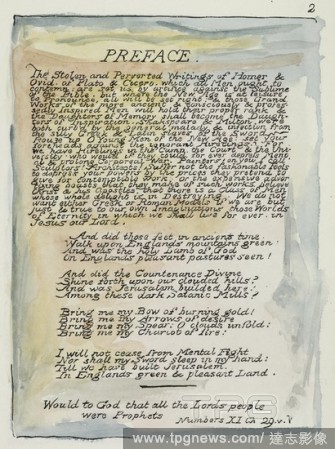 2
PREFACE.
The Stolen and Perverted Writings of Homer &
Ovid: of Plato & Cicero, which all Men ought to
contemn: are set up by artifice against the Sublime
of the Bible. but when the New Age is at leisure
to Pronounce; all will be set right: & those Grand
Works of the more ancient & consciously & profes-
sedly Inspired Men, will hold their proper rank, &
the Daughters of Memory shall become the Daugh-
ters of Inspiration. Shakspeare & Milton were
both curbd by the general malady & infection from
the silly Greek & Latin slaves of the Sword.
Rouze up O Young Men of the New Age! set your
foreheads against the ignorant Hirelings! For
we have Hirelings in the Camp, the Court, & the Uni-
versity: who would if they could, for ever depress Mental
& prolong Corporeal War. Painters! on you I call!
Sculptors! Architects! Suffer not the fashionable Fools
to depress your powers by the prices they pretend to
give for contemptible works or the expensive adver-
tizing boasts that they make of such works; believe
Christ & his Apostles that there is a Class of Men
whose whole delight is in Destroying. We do not
want either Greek or Roman Models if we are but
just & true to our own Imaginations, those Worlds
of Eternity in which we shall live for ever; in
Jesus our Lord.
And did those feet in ancient time,
Walk upon Englands mountains green:
And was the holy Lamb of God,
On Englands pleasant pastures seen!
And did the Countenance Divine,
Shine forth upon our clouded hills?
And was Jerusalem builded here,
Among these dark Satanic Mills?
Bring me my Bow of burning gold:
Bring me my Arrows of desire:
Bring me my Spear: O clouds unfold:
Bring me my Chariot of fire!
I will not cease from Mental Fight,
Nor shall my Sword sleep in my hand:
Till we have built Jerusalem,
In Englands green & pleasant Land.
Would to God that all the Lords people
were Prophets Numbers XI Ch 29.v.
www.tpgnews.com/達志影像